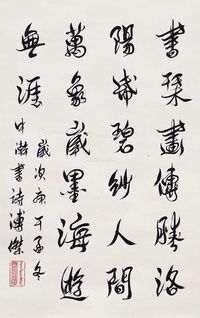 書琹畫傳勝洛
陽城碧紗人間
萬象藏墨海遊
無涯
歲次庚午孟冬
書詩溥傑